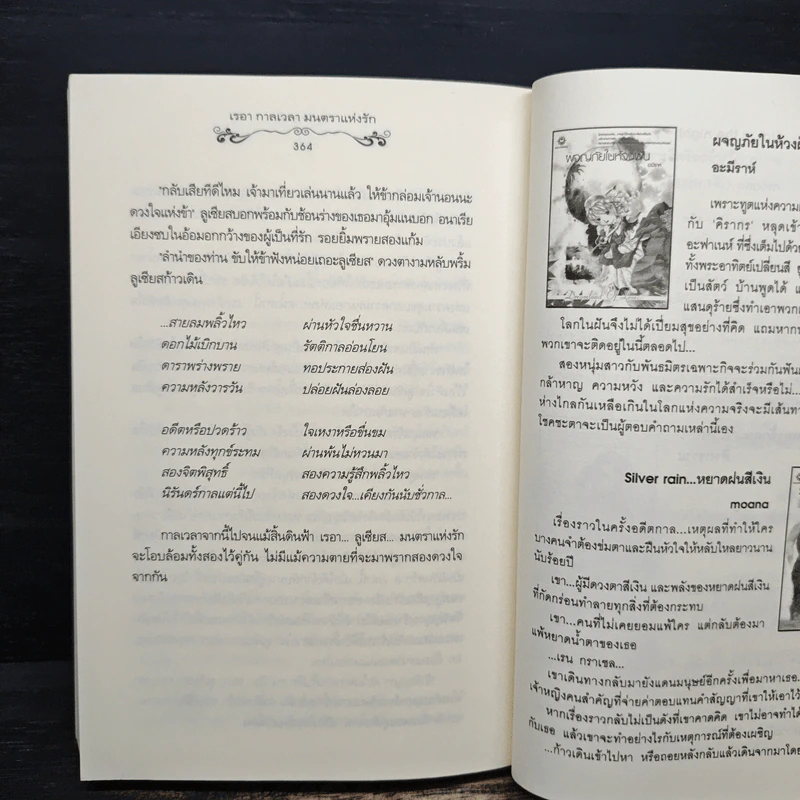 เรอา กาลเวลา มนตราแห่งรัก
364
"กลับเสียทีดีไหม เจ้ามาเที่ยวเล่นนานแล้ว ให้ข้ากล่อมเจ้านอนนะ
ดวงใจแห่งข้า" ลูเซียสบอกพร้อมกับช้อนร่างของเธอมาอุ้มแนบอก อนาเรีย
เอียงซบในอ้อมอกกว้างของผู้เป็นที่รัก รอยยิ้มพรายสองแก้ม
"ลำนำของท่าน ขับให้ข้าฟังหน่อยเถอะลูเซียส" ดวงตางามหลับพริ้ม
ลูเซียสก้าวเดิน
...สายลมพลิ้วไหว ผ่านหัวใจชื่นหวาน
ดอกไม้เบิกบาน รัตติกาลอ่อนโยน
ดาราพร่างพราย ทอประกายส่องฝัน
ความหลังวารวัน ปล่อยฝันล่องลอย
อดีตหรือปวดร้าว ใจเหงาหรือขื่นขม
ความหลังทุกข์ระทม ผ่านพ้นไม่หวนมา
สองจิตพิสุทธิ์ สองความรู้สึกพลิ้วไหว
นิรันดร์กาลแต่นี้ไป สองดวงใจ...เคียงกันนับชั่วกาล...
กาลเวลาจากนี้ไปจนแม้สิ้นดินฟ้า เรอา... ลูเซียส... มนตราแห่งรัก
จะโอบล้อมทั้งสองไว้คู่กัน ไม่มีแม้ความตายที่จะมาพรากสองดวงใจ
จากกัน
ผจญภัยในห้วงฝัน
ผจญภัยในห้วง
อะมีราห์
เพราะทูตแห่งความ
กับ 'คิรากร' หลุดเข้า
อะฟาเนห์ ที่ซึ่งเต็มไปด้วย
ทั้งพระอาทิตย์เปลี่ยนสี
เป็นสัตว์ บ้านพูดได้
แสนดุร้ายซึ่งทำเอาพวก
โลกในฝันจึงไม่ได้เปี่ยมสุขอย่างที่คิด แถมหาก
พวกเขาจะติดอยู่ในนี้ตลอดไป...
สองหนุ่มสาวกับพันธมิตรเฉพาะกิจจะร่วมกันฟัน
กล้าหาญ ความหวัง และความรักได้สำเร็จหรือไม่...
ห่างไกลกันเหลือเกินในโลกแห่งความจริงจะมีเส้นทา
โชคชะตาจะเป็นผู้ตอบคำถามเหล่านี้เอง
Silver rain...หยาดฝนสีเงิน
moana
เรื่องราวในครั้งอดีตกาล...เหตุผลที่ทำให้ใคร
บางคนจำต้องข่มตาและฝืนหัวใจให้หลับใหลยาวนาน
นับร้อยปี
เขา...ผู้มีดวงตาสีเงิน และพลังของหยาดฝนสีเงิน
ที่กัดกร่อนทำลายทุกสิ่งที่ต้องกระทบ
เขา...คนที่ไม่เคยยอมแพ้ใคร แต่กลับต้องมา
แพ้หยาดน้ำตาของเธอ
...เรน กราเซล...
เขาเดินทางกลับมายังแดนมนุษย์อีกครั้งเพื่อมาหาเธอ...
เจ้าหญิงคนสำคัญที่จ่ายค่าตอบแทนคำสัญญาที่เขาให้เอาไว้
หากเรื่องราวกลับไม่เป็นดังที่เขาคาดคิด เขาไม่อาจทำได้
กับเธอ แล้วเขาจะทำอย่างไรกับเหตุการณ์ที่ต้องเผชิญ
...ก้าวเดินเข้าไปหา หรือถอยหลังกลับแล้วเดินจากมาโดย